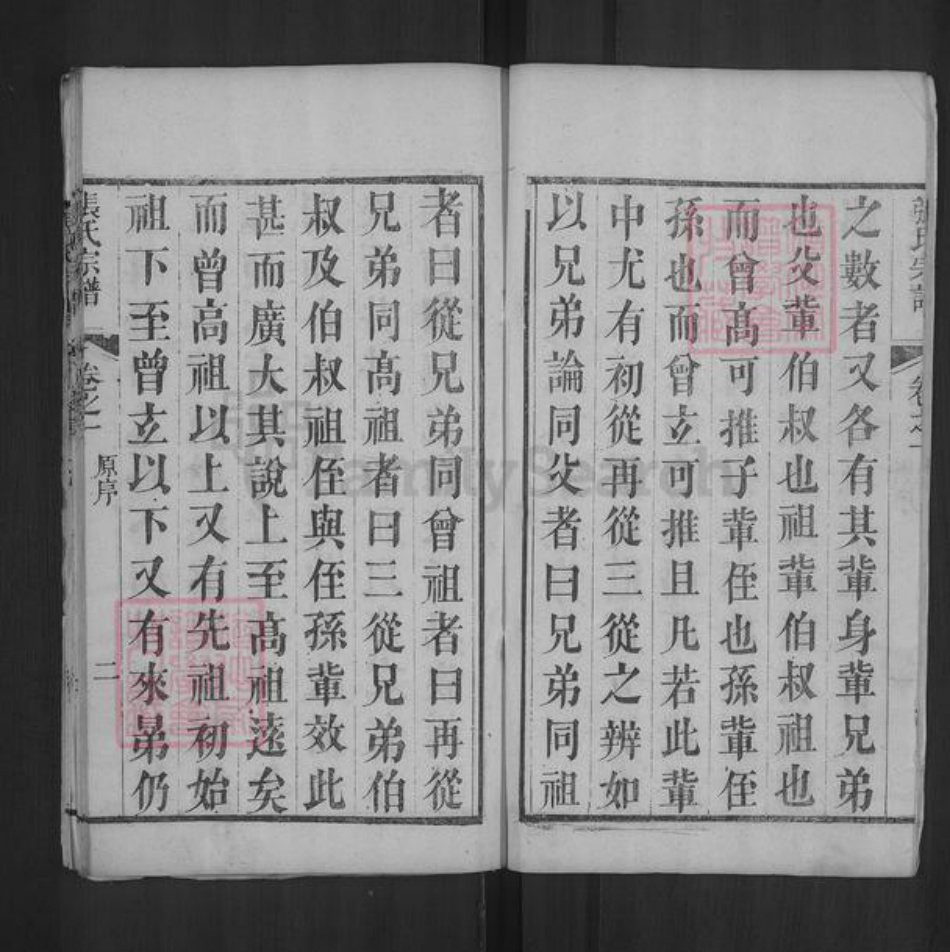 張氏宗譜 卷之一
之數者又各有其輩身輩兄弟
也父輩伯叔也祖輩伯叔祖也
而曾髙可推子輩侄也孫輩侄
孫也而曾玄可推且凡若此輩
中尤有初從再從三從之辨如
以兄弟論同父者曰兄弟同祖
者曰從兄弟同曾祖者曰再從
兄弟同髙祖者曰三從兄弟伯
叔及伯叔祖侄與侄孫輩效此
甚而廣大其說上至髙祖遠矣
而曾高祖以上又有先祖初始
祖下至曾玄以下又有來晜仍
張氏宗譜 卷之一 原序 二
FamilySearch